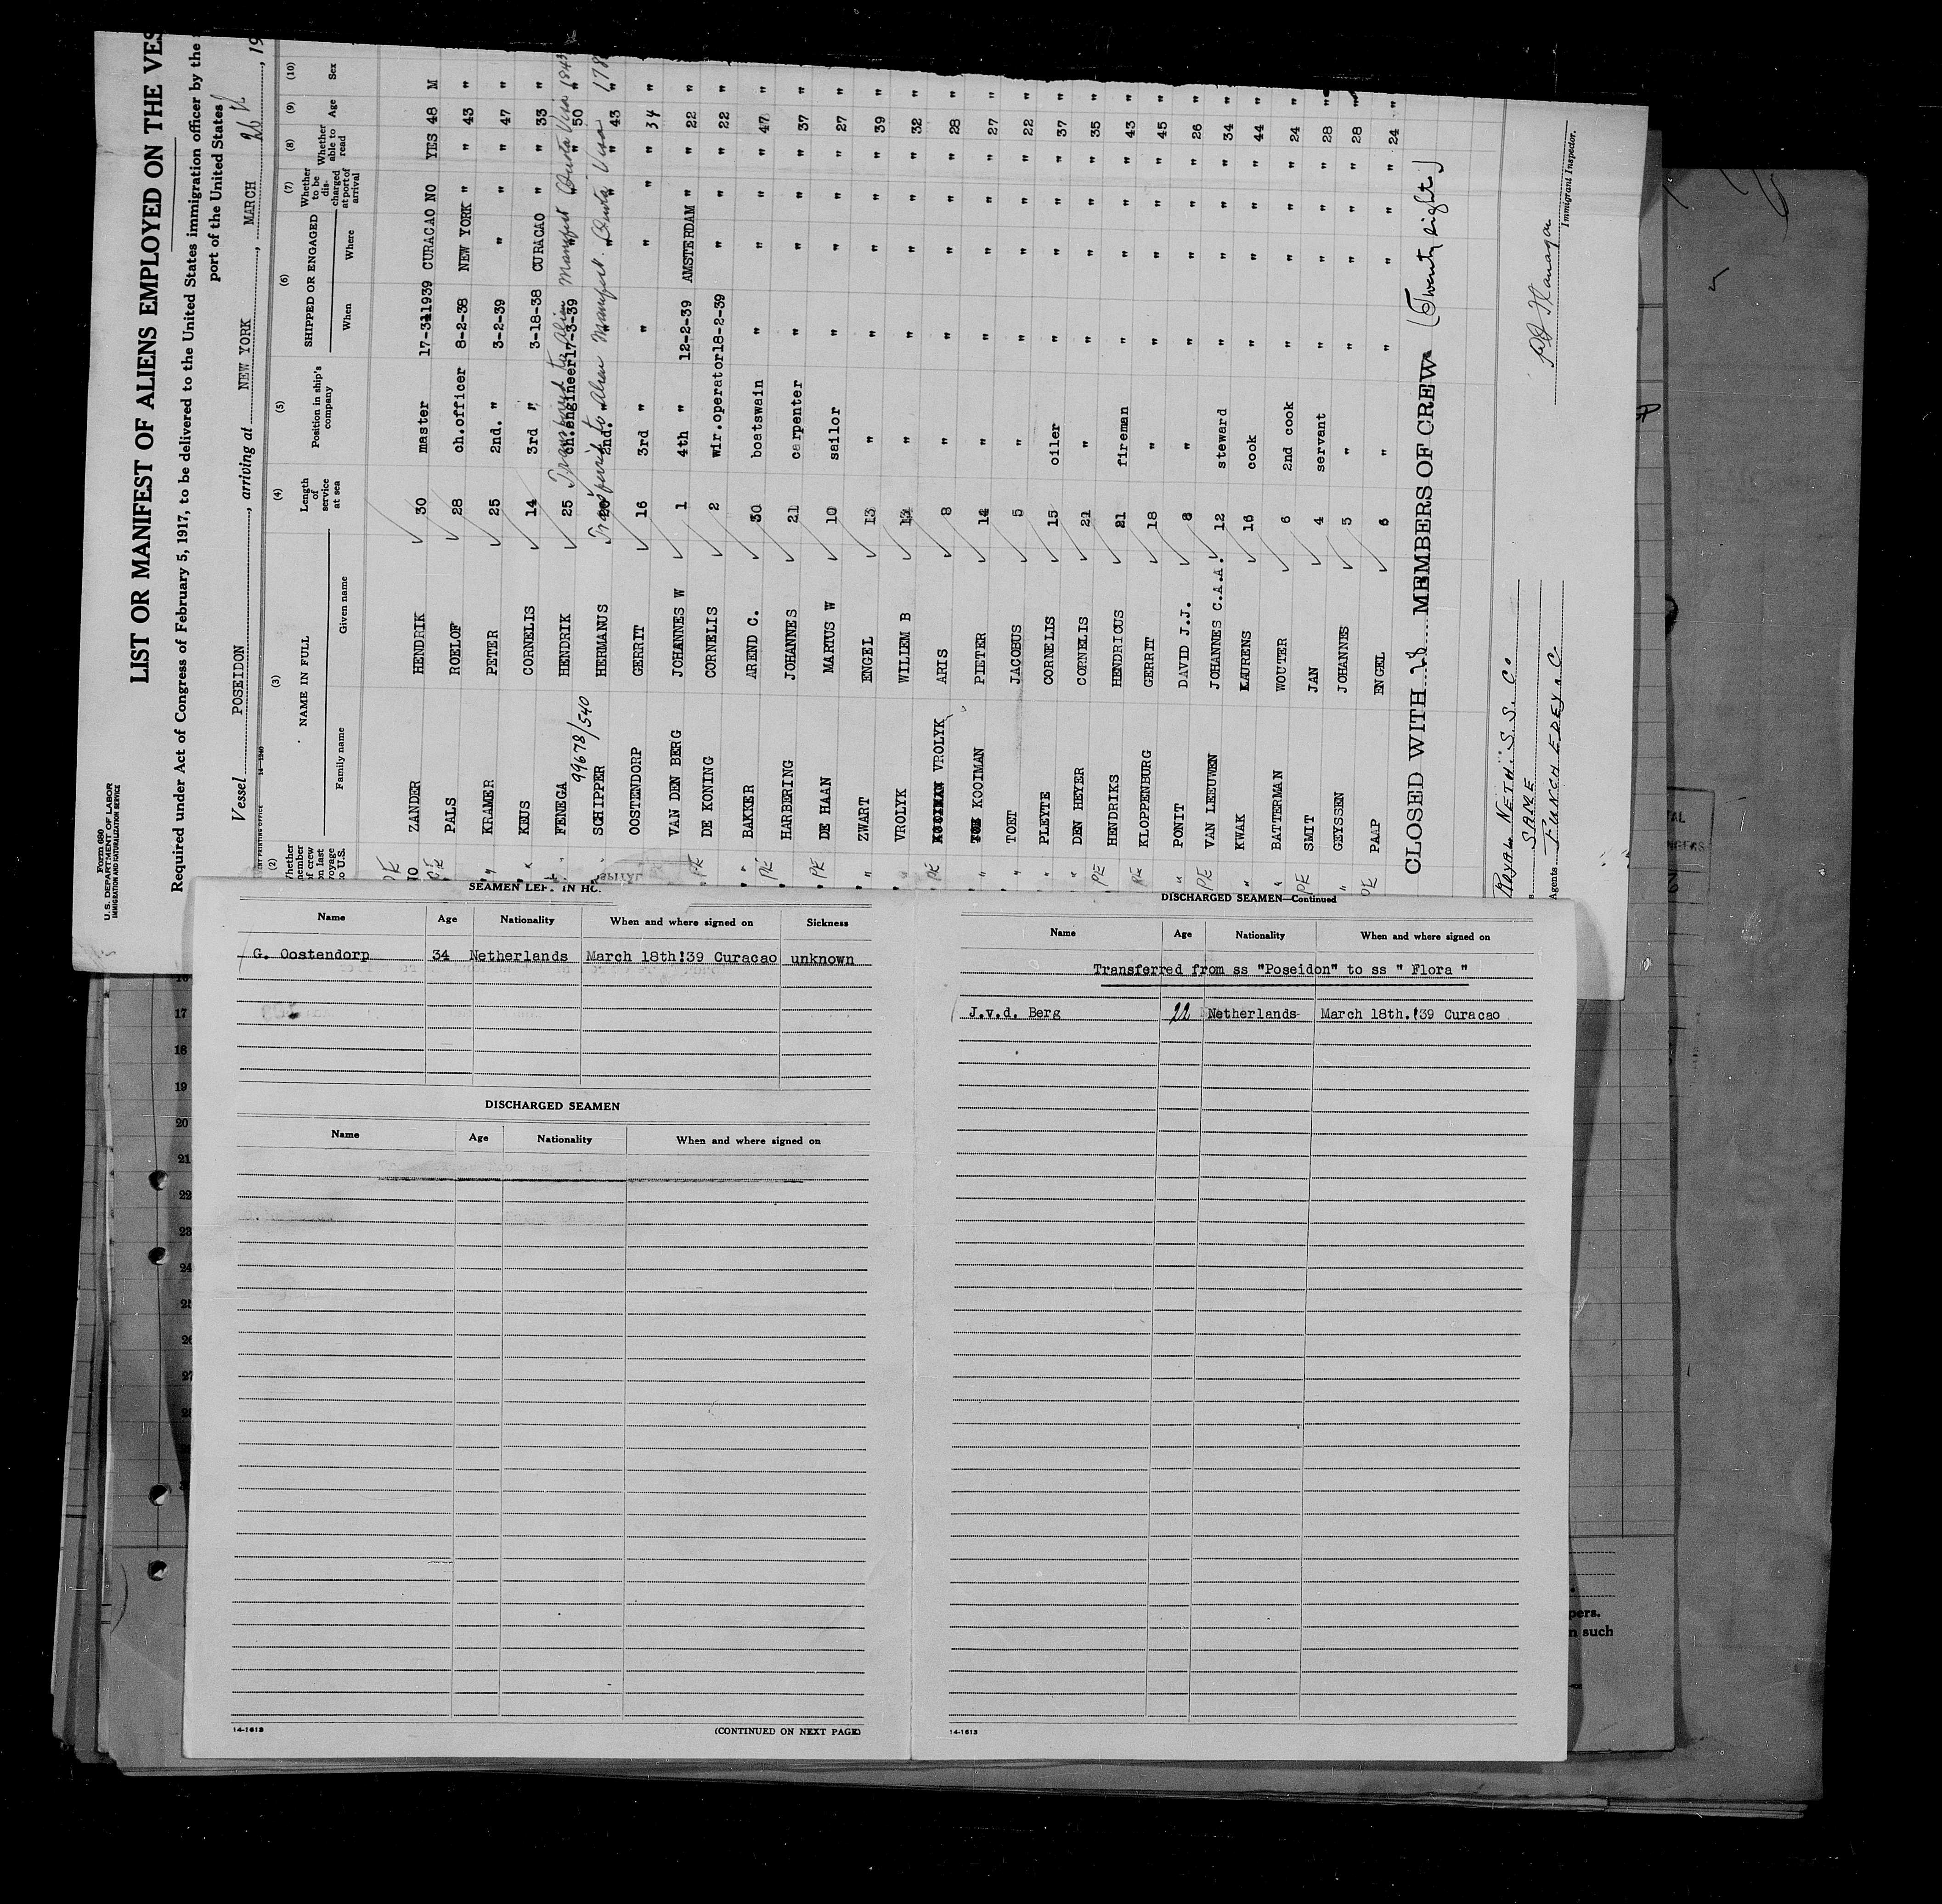 Form 680
U.S. DEPARTMENT OF LABOR
IMMIGRATION AND NATURALIZATION SERVICE
LIST OR MANIFEST OF ALIENS EMPLOYED ON THE VES
Required under Act of Congress of February 5, 1917, to be delivered to the United States immigration officer by the
port of the United States
Vessel POSEIDON, arriving at NEW YORK, MARCH 26th, 19
(2) (3) (4) (5) (6) (7) (8) (9) (10)
Whether member of crew on last voyage to U.S. NAME IN FULL Family name Given name Length of service at sea Position in ship's company SHIPPED OR ENGAGED When Where Whether to be discharged at port of arrival Whether able to read Age Sex
ZANDER HENDRIK 30 master 17-3-1939 CURACAO NO YES 48 M
PALS ROELOF 28 ch.officer 8-2-38 NEW YORK " " 43 "
KRAMER PETER 25 2nd. " 3-2-39 " " " 47 "
KEUS CORNELIS 14 3rd " 3-18-38 CURACAO " " 33 "
FENEGA HENDRIK 25 ch.engineer 17-3-39 " " " 50 "
Transferred to Alien Manifest Quota Visa 1843
99678/540
SCHIPPER HERMANUS 2nd. " " " " " 43 "
Transferred to Alien Manifest. Quota Visa 178
OOSTENDORP GERRIT 16 3rd " " " " " 34 "
VAN DEN BERG JOHANNES W 1 4th " 12-2-39 AMSTERDAM " " 22 "
DE KONING CORNELIS 2 wir.operator 18-2-39 " " " 22 "
BAKKER AREND C. 30 boatswain " " " " 47 "
HARBERING JOHANNES 21 carpenter " " " " 37 "
DE HAAN MARTUS W 10 sailor " " " " 27 "
ZWART ENGEL 13 " " " " " 39 "
VROLYK WILLEM B " " " " " 32 "
VROLYK ARIS 8 " " " " " 28 "
KOOIMAN PIETER 14 " " " " " 27 "
TOET JACOBUS 5 " " " " " 22 "
PLEYTE CORNELIS 15 oiler " " " " 37 "
DEN HEYER CORNELIS 21 " " " " " 35 "
HENDRIKS HENDRICUS 21 fireman " " " " 43 "
KLOPPENBURG GERRIT 18 " " " " " 45 "
PONIT DAVID J.J. 8 " " " " " 26 "
VAN LEEUWEN JOHANNES C.A.A. 12 steward " " " " 34 "
KWAK LAURENS 16 cook " " " " 44 "
BATTERMAN WOUTER 6 2nd cook " " " " 24 "
SMIT JAN 4 servant " " " " 28 "
GEYSSEN JOHANNES 5 " " " " " 28 "
PAAP ENGEL 6 " " " " " 24 "
CLOSED WITH 28 MEMBERS OF CREW (Twenty eight)
Royal Neth. S.S. Co
SAME
Agents FUNCH EDEY & C
Immigrant Inspector.
SEAMEN LEFT IN HO
Name Age Nationality When and where signed on Sickness
G. Oostendorp 34 Netherlands March 18th!39 Curacao unknown
DISCHARGED SEAMEN
Name Age Nationality When and where signed on
14-1613 (CONTINUED ON NEXT PAGE)
DISCHARGED SEAMEN—Continued
Name Age Nationality When and where signed on
Transferred from ss "Poseidon" to ss " Flora "
J.v.d. Berg 22 Netherlands March 18th.!39 Curacao
14-1613
17
18
19
20
21
22
23
24
pers.
n such